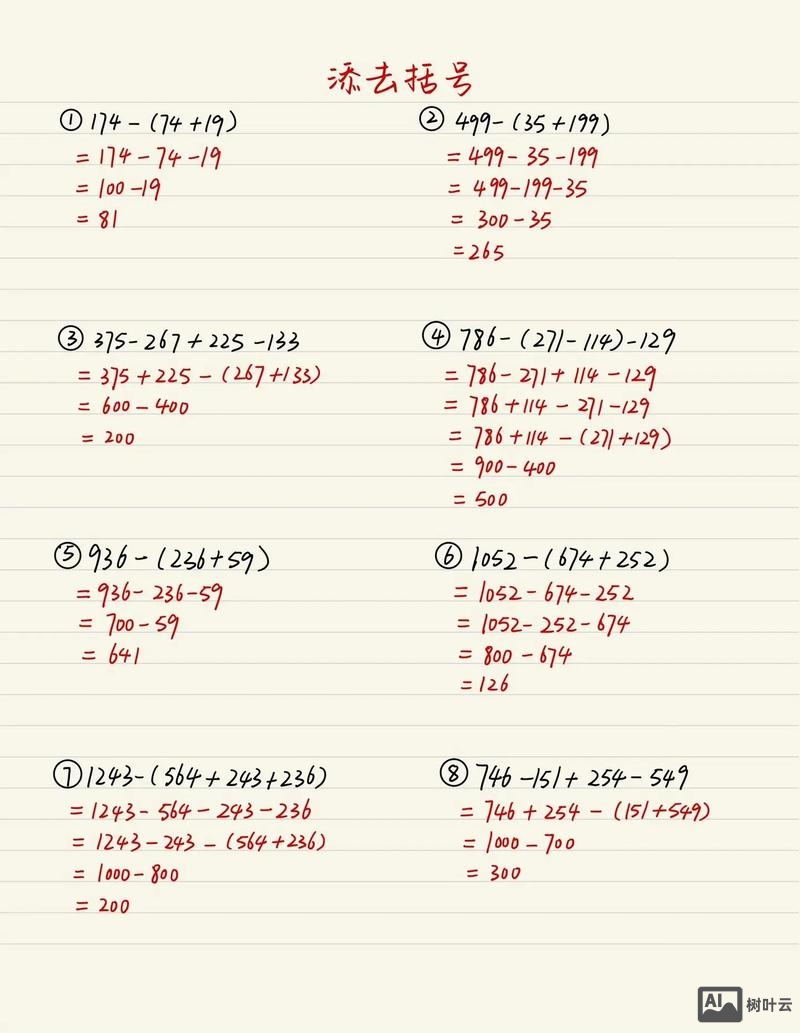 添去括号
① 174-(74+19)
=174-74-19
=100-19
=81
② 499-(35+199)
=499-35-199
=499-199-35
=300-35
=265
③ 375-267+225-133
=375+225-(267+133)
=600-400
=200
④ 786-(271-114)-129
=786-271+114-129
=786+114-271-129
=786+114-(271+129)
=900-400
=500
⑤ 936-(236+59)
=936-236-59
=700-59
=641
⑥ 1052-(674+252)
=1052-674-252
=1052-252-674
=800-674
=126
⑦ 1243-(564+243+236)
=1243-564-243-236
=1243-243-(564+236)
=1000-800
=200
⑧ 746-151+254-549
=746+254-(151+549)
=1000-700
=300
AI 树叶云